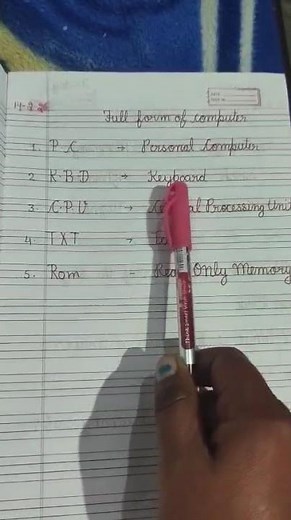 Full form of computer
1. P C → Personal Computer
2. K.B.D → Keyboard
3. C.P.U → Processing Unit
4. TXT →
5. Rom - Read Only Memory